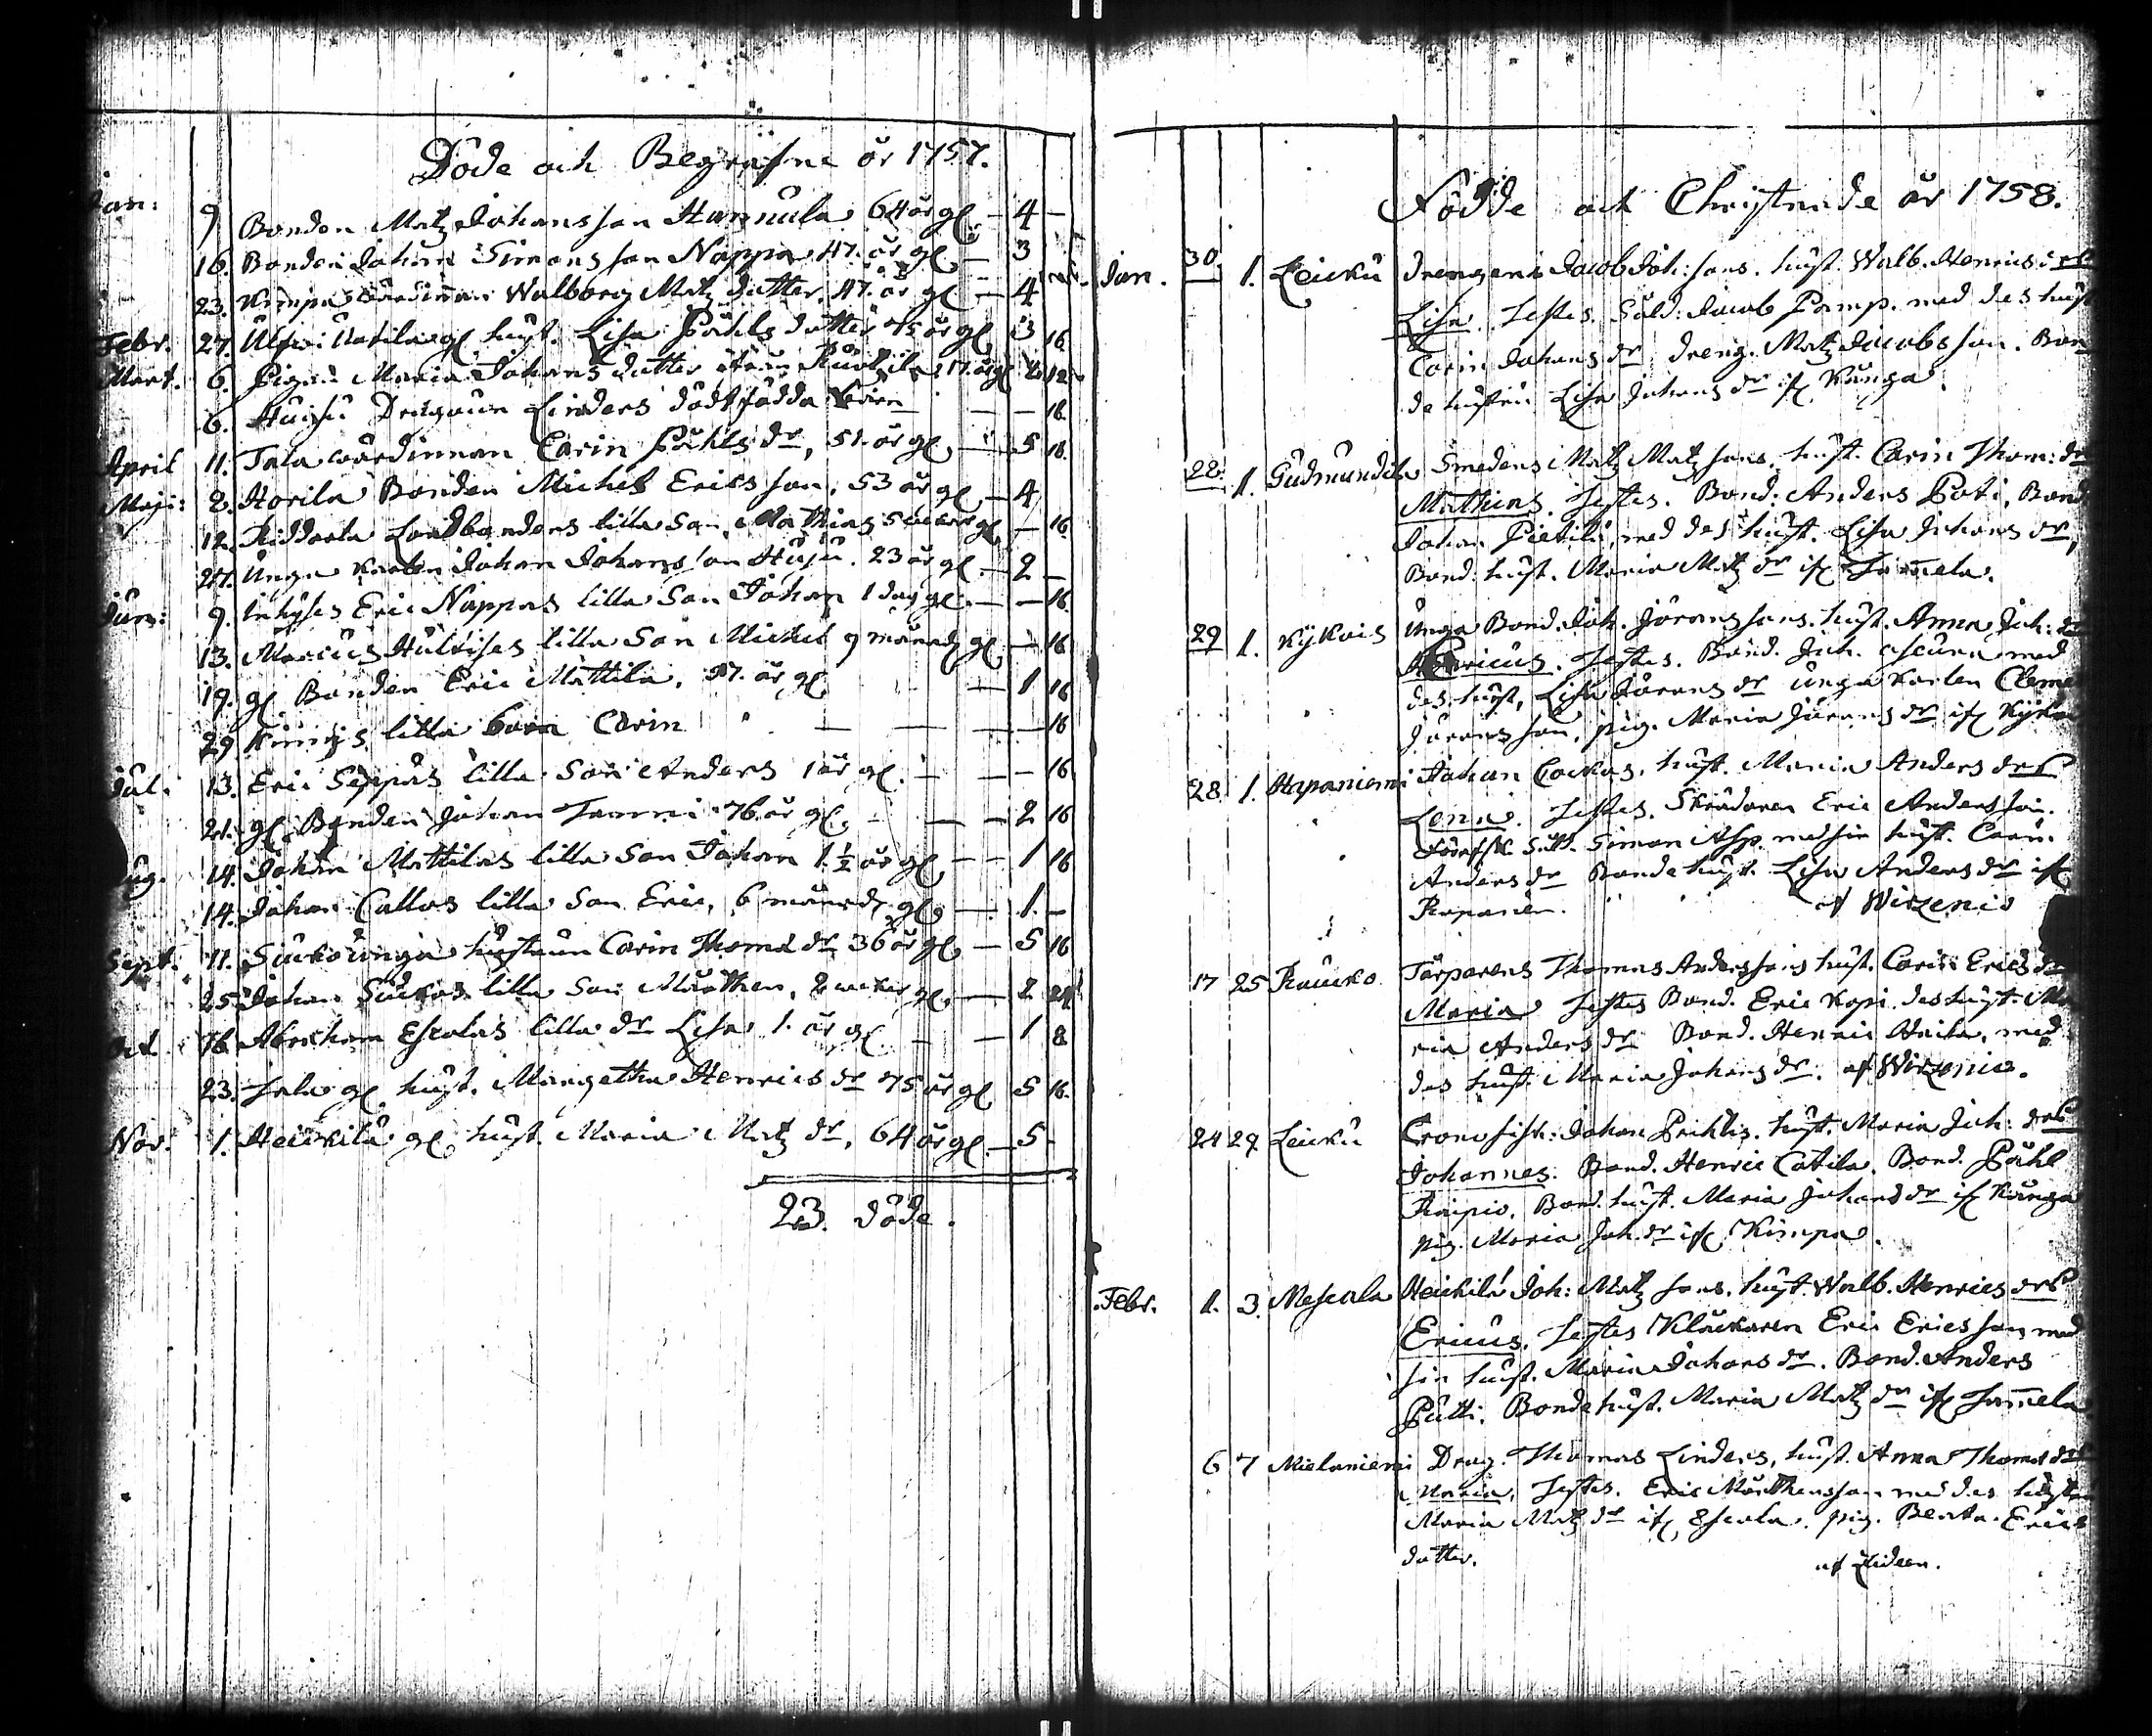 Döde och Begrafne år 1757.
Jan: 9 Bonden Matz Johansson Hannula 64 år gl. — 4 —
16. Bonden Johan Simonsson Nappa 47. år gl — 3
23. Kimpas wärdinnan Walborg Matz dotter. 47. år gl — 4
Febr. 27. gl hust. Lisa Påhls dotter 75 år gl 3 16
Mart. 6. Pigan Maria Johans dotter 17. år gl 12
6. Huisu Dragoun Linders dödfödda — — 16.
April 11. Tala wärdinnan Carin Påhls dr, 51. år gl — 5 16.
Maji: 2. Horila Bonden Michel Ericsson, 53 år gl — 4
12. Riddarla Landbondens lilla Son Mathias 5 weckor gl — 16.
27. Unga Karlen Johan Johansson Huisu. 23 år gl. — 2 —
Jun: 9. Inhyses Eric Nappas lilla Son Johan 1 dag gl. — — 16.
13. Marcus Hulkises lilla Son Michel 9 månad gl — 16
19. gl Bonden Eric Mattila, 97. år gl — 1 16
29 lilla barn Carin — — — 16
Jul: 13. Eric Seppäs lilla Son Anders 1 år gl. — — — 16
21. gl Bonden Johan Tammi 76 år gl. — — 2 16
Aug. 14. Johan Mattilas lilla Son Johan 1 ½ år gl — — 1 16
14. Johan Callas lilla Son Eric, 6 månad gl — 1. —
Sept. 11. unga hustrun Carin Thoms dr 36 år gl — 5 16
25 Johan lilla Son Mårthen, 2 weckor gl. — 2 24
Oct. 16. Abraham Escolas lilla dr Lisa 1. år gl — — 1 8
23. gl. hust. Margetha Henrics dr 75 år gl 5 16.
Nov. 1. Heickilä gl hust. Maria Matz dr, 64 år gl. — 5 —
23. döde.
Födde och Christnade år 1758.
Jan. 30. 1. Leicku Drengens Jacob Joh: sons. hust. Walb. Henrics
Lisa. Testes. Sold: Jacob Pamp. med des hust
Carin Johans dr dreng. Matz Jacobsson. Bon
de hustru Lisa Johans dr if Kånga.
28. 1. Gudmundila Smedens Matz Matz sons. hust. Carin Thom: dr
Mathias. Testes. Bond: Anders Poti, Bond
Johan Pietilä, med des hust. Lisa Johans dr,
Bond: hust. Maria Matz dr if
29 1. Kijkois Unga Bond. Joh. Jöranssons. hust. Anna Joh: dr
Henricus. Testes. Bond. Joh. med
des hust, Lisa Jörans dr unga karlen Cleme
Jöransson, pig. Maria Jörans dr if
28 1. Haponiemi Johan Cockos, hust. Maria Anders drs
Lena. Testes. Skräddaren Eric Andersson.
Sold. Simon Asp med sin hust. Carin
Anders dr Bonde hust. Lisa Anders dr if
af Wirzenio
17 25 Raucko Torparens Thomas Anderssons hust. Carin Erics dr
Maria Testes Bond. Eric Kopi. des hust. Ma
ria Anders dr Bond. Henric med
des hust. Maria Johans dr. af Wirzenio.
24 29 Leicku Johan hust. Maria Joh: drs
Johannes. Bond. Henric Catila. Bond. Påhl
Raipio. Bond. hust. Maria Johans dr if Kånga
pig. Maria Joh. dr if Kimpa.
Febr. 1. 3. Mescala Heickilä Joh: Matz sons. hust. Walb. Henrics drs
Ericus. Testes Klåckaren Eric Ericsson med
sin hust. Maria Johans dr. Bond. Anders
Putti. Bonde hust. Maria Matz dr if
6 7 Mielaniemi Drag. Thomas Linders, hust. Anna Thoms drs
Maria, Testes. Eric Mårthensson med des hustru
Maria Matz dr if Escola. pig. Beata Erics
dotter. af